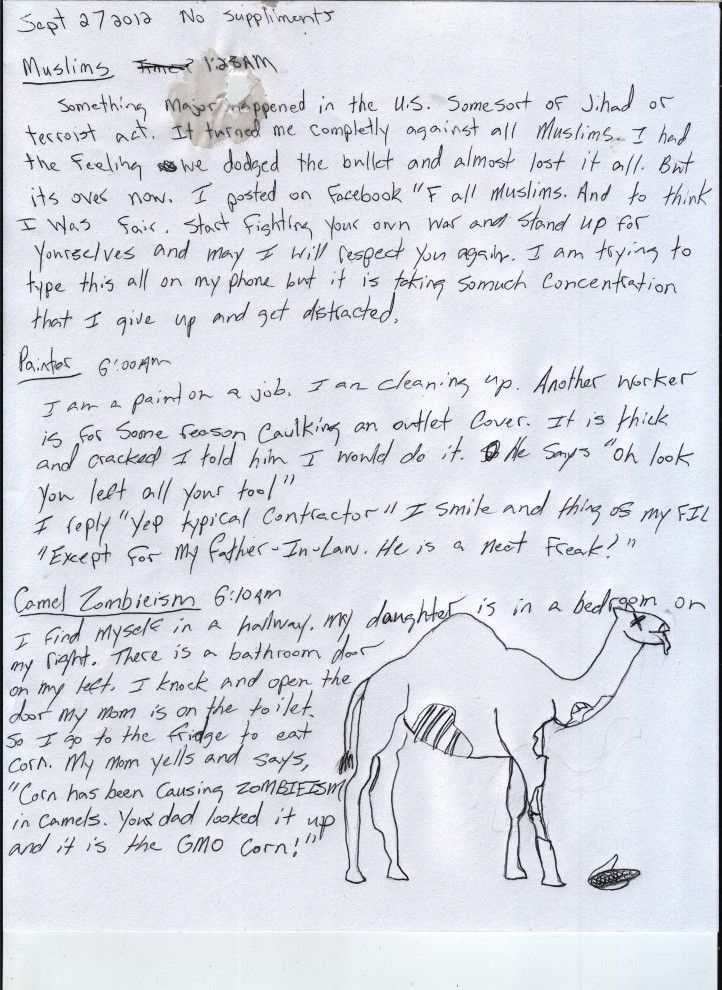 Sept 27 2012 No Suppliments
Muslims Time? 1:28AM
Something Major happened in the U.S. Somesort of Jihad or
terroist act. It turned me completly against all Muslims. I had
the feeling we dodged the bullet and almost lost it all. But
its over now. I posted on Facebook "F all muslims. And to think
I Was fair. Start fighting your own war and stand up for
yourselves and may I will respect you again. I am trying to
type this all on my phone but it is taking somuch Concentration
that I give up and get distracted.
Painter 6:00AM
I am a paint on a job. I am cleaning up. Another worker
is for some reason Caulking an outlet cover. It is thick
and cracked I told him I would do it. He says "Oh look
you left all your tool"
I reply "Yep typical Contractor" I smile and thing of my FIL
"Except for my Father-In-Law. He is a neet Freak!"
Camel Zombieism 6:10AM
I find myself in a hallway. my daughter is in a bedroom on
my right. There is a bathroom door
on my left. I knock and open the
door my mom is on the toilet.
So I go to the fridge to eat
corn. My mom yells and says,
"Corn has been causing ZOMBIEISM
in Camels. Your dad looked it up
and it is the GMO Corn!"